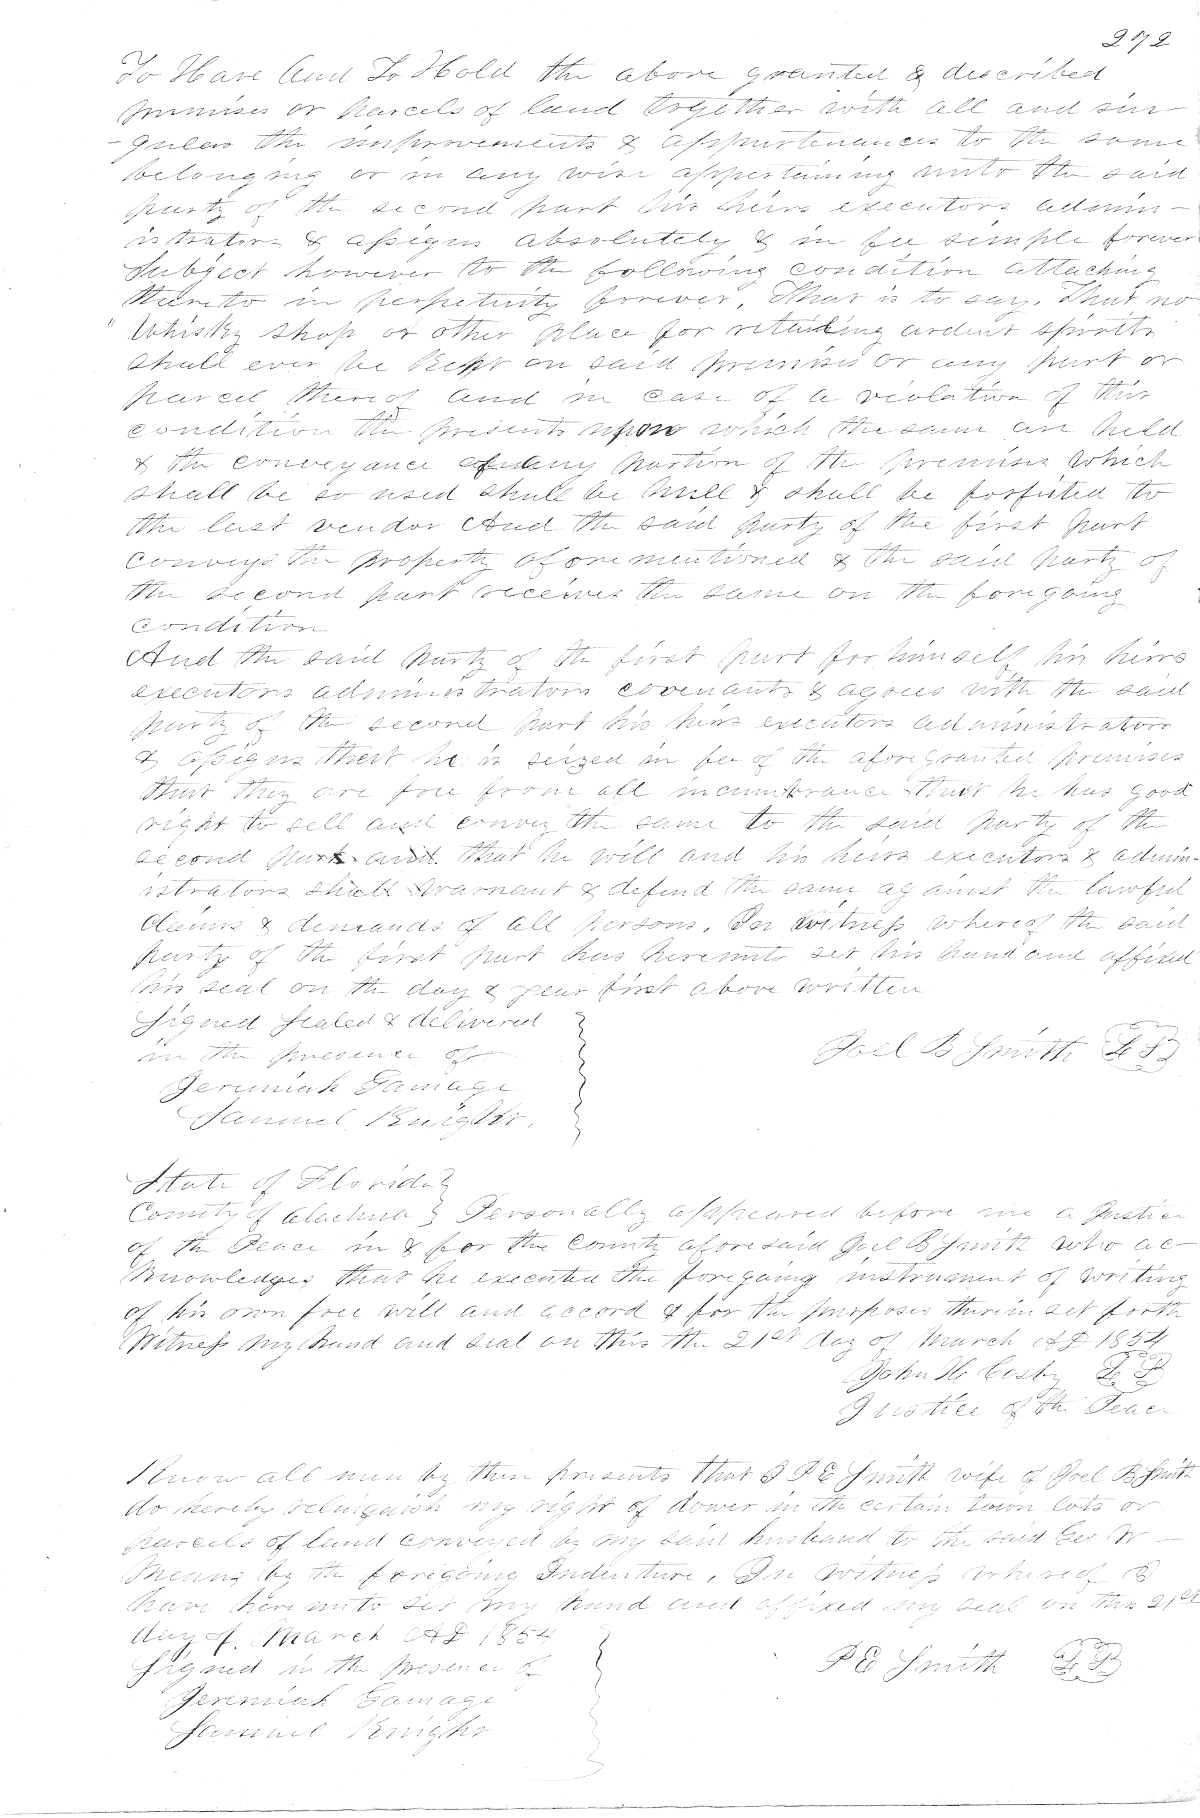 272
To Have And To Hold the above granted & described
premises or parcels of land together with all and sin-
-gular the improvements & appurtenances to the same
belonging or in any wise appertaining unto the said
party of the second part his heirs executors admin-
istrators & assigns absolutely & in fee simple forever
Subject however to the following condition attaching
thereto in perpetuity forever, That is to say, That no
"Whisky shop or other place for retailing ardent spirits
shall ever be kept on said premises or any part or
parcel thereof and in case of a violation of this
condition the presents upon which the same are held
& the conveyance of any portion of the premises which
shall be so used shall be null & shall be forfeited to
the last vendor And the said party of the first part
conveys the property aforementioned & the said party of
the second part receives the same on the foregoing
condition
And the said party of the first part for himself his heirs
executors administrators covenants & agrees with the said
party of the second part his heirs executors administrators
& assigns that he is seized in fee of the aforegranted premises
that they are free from all incumbrance that he has good
right to sell and convey the same to the said party of the
second part and that he will and his heirs executors & admin-
istrators shall warrant & defend the same against the lawful
claims & demands of all persons. In witness whereof the said
party of the first part has hereunto set his hand and affixed
his seal on the day & year first above written
Signed Sealed & delivered
in the presence of
Joel B Smith LS
Jeremiah Gamage
Samuel Knight.
State of Florida }
County of Alachua } Personally appeared before me a Justice
of the Peace in & for the County aforesaid Joel B Smith who ac-
knowledges that he executed the foregoing instrument of writing
of his own free will and accord & for the purposes therein set forth
Witness my hand and seal on this the 21st day of March AD 1854
John H Cosby LS
Justice of the Peace
Know all men by these presents that I P E Smith wife of Joel B Smith
do hereby relinquish my right of dower in the certain town lots or
parcels of land conveyed by my said husband to the said Geo W
Means by the foregoing Indenture, In witness whereof I
have hereunto set my hand and affixed my seal on this 21st
day of March AD 1854
Signed in the presence of
P E Smith LS
Jeremiah Gamage
Samuel Knight